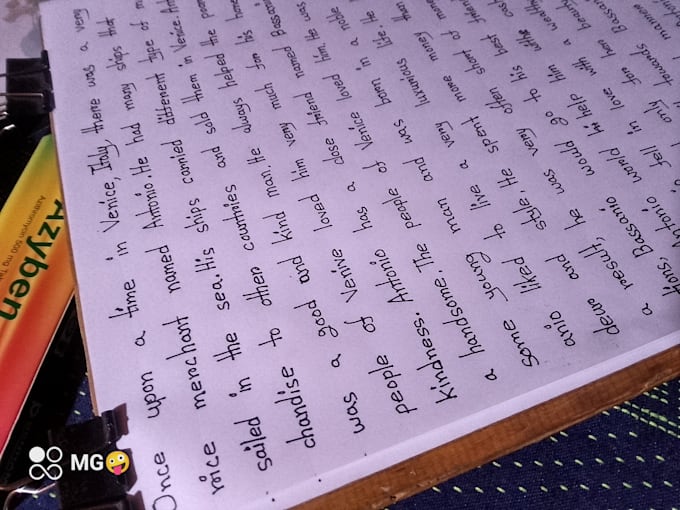 Once upon a time in Venice, Italy there was a very
rice merchant named Antonio. He had many ships that
sailed in the sea. His ships carried different type of m
chandise to other countries and sold them in Venice. Anto
was a good and kind man. He always helped the poor
people of Venive loved him very much for his hone
Kindness. Antonio has a close friend named Bassani
a handsome. The people of Venice loved him. He was
some young man and was born in a noble
anio liked to live a very luxurious life. He
dew and style. He spent more money than
a result, he was very often short of mone
tons, Bassanio would go to his best friend
Antonio would help him with cash
fell in love with a wealth
only for her beauty
towards Bassan
Azyben
Azithromycin 500 mg Tab
MG